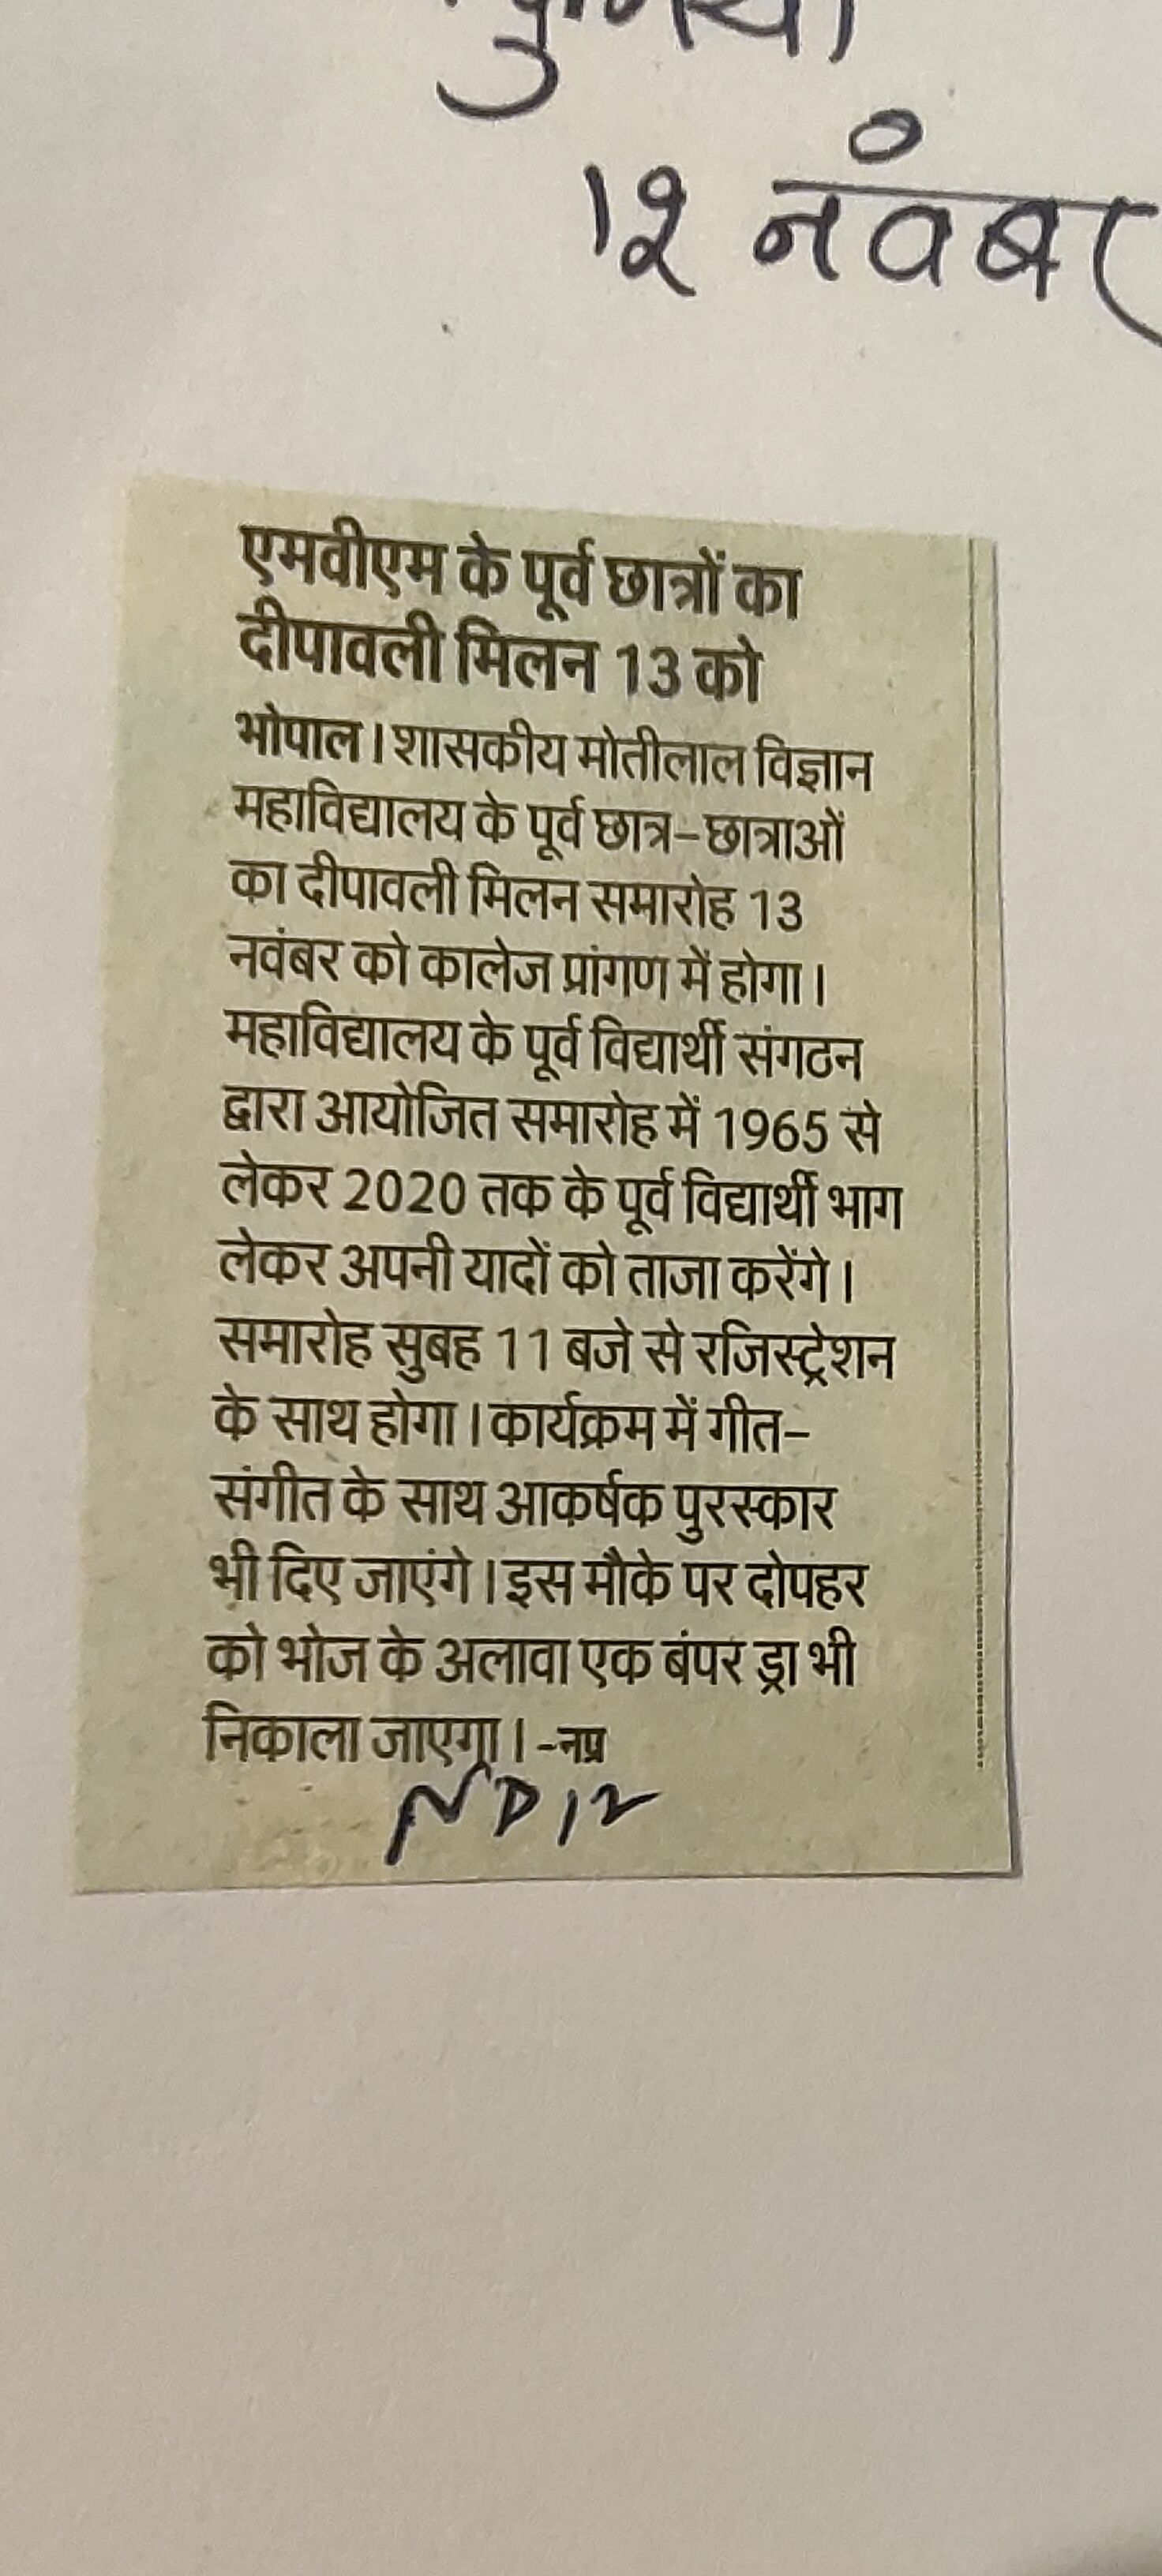 १२ नवंबर
एमवीएम के पूर्व छात्रों का
दीपावली मिलन 13 को
भोपाल । शासकीय मोतीलाल विज्ञान
महाविद्यालय के पूर्व छात्र-छात्राओं
का दीपावली मिलन समारोह 13
नवंबर को कालेज प्रांगण में होगा ।
महाविद्यालय के पूर्व विद्यार्थी संगठन
द्वारा आयोजित समारोह में 1965 से
लेकर 2020 तक के पूर्व विद्यार्थी भाग
लेकर अपनी यादों को ताजा करेंगे ।
समारोह सुबह 11 बजे से रजिस्ट्रेशन
के साथ होगा । कार्यक्रम में गीत-
संगीत के साथ आकर्षक पुरस्कार
भी दिए जाएंगे । इस मौके पर दोपहर
को भोज के अलावा एक बंपर ड्रा भी
निकाला जाएगा । -नप्र
ND 12